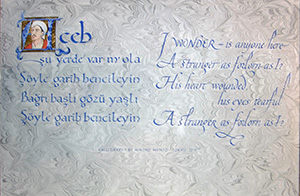 Aceb
şu yerde var m'ola
Şöyle garib bencileyin
Bağrı başlı gözü yaşlı
Şöyle garib bencileyin
I WONDER – is anyone here
A stranger as forlorn as I?
His heart wounded,
his eyes tearful
A stranger as forlorn as I?